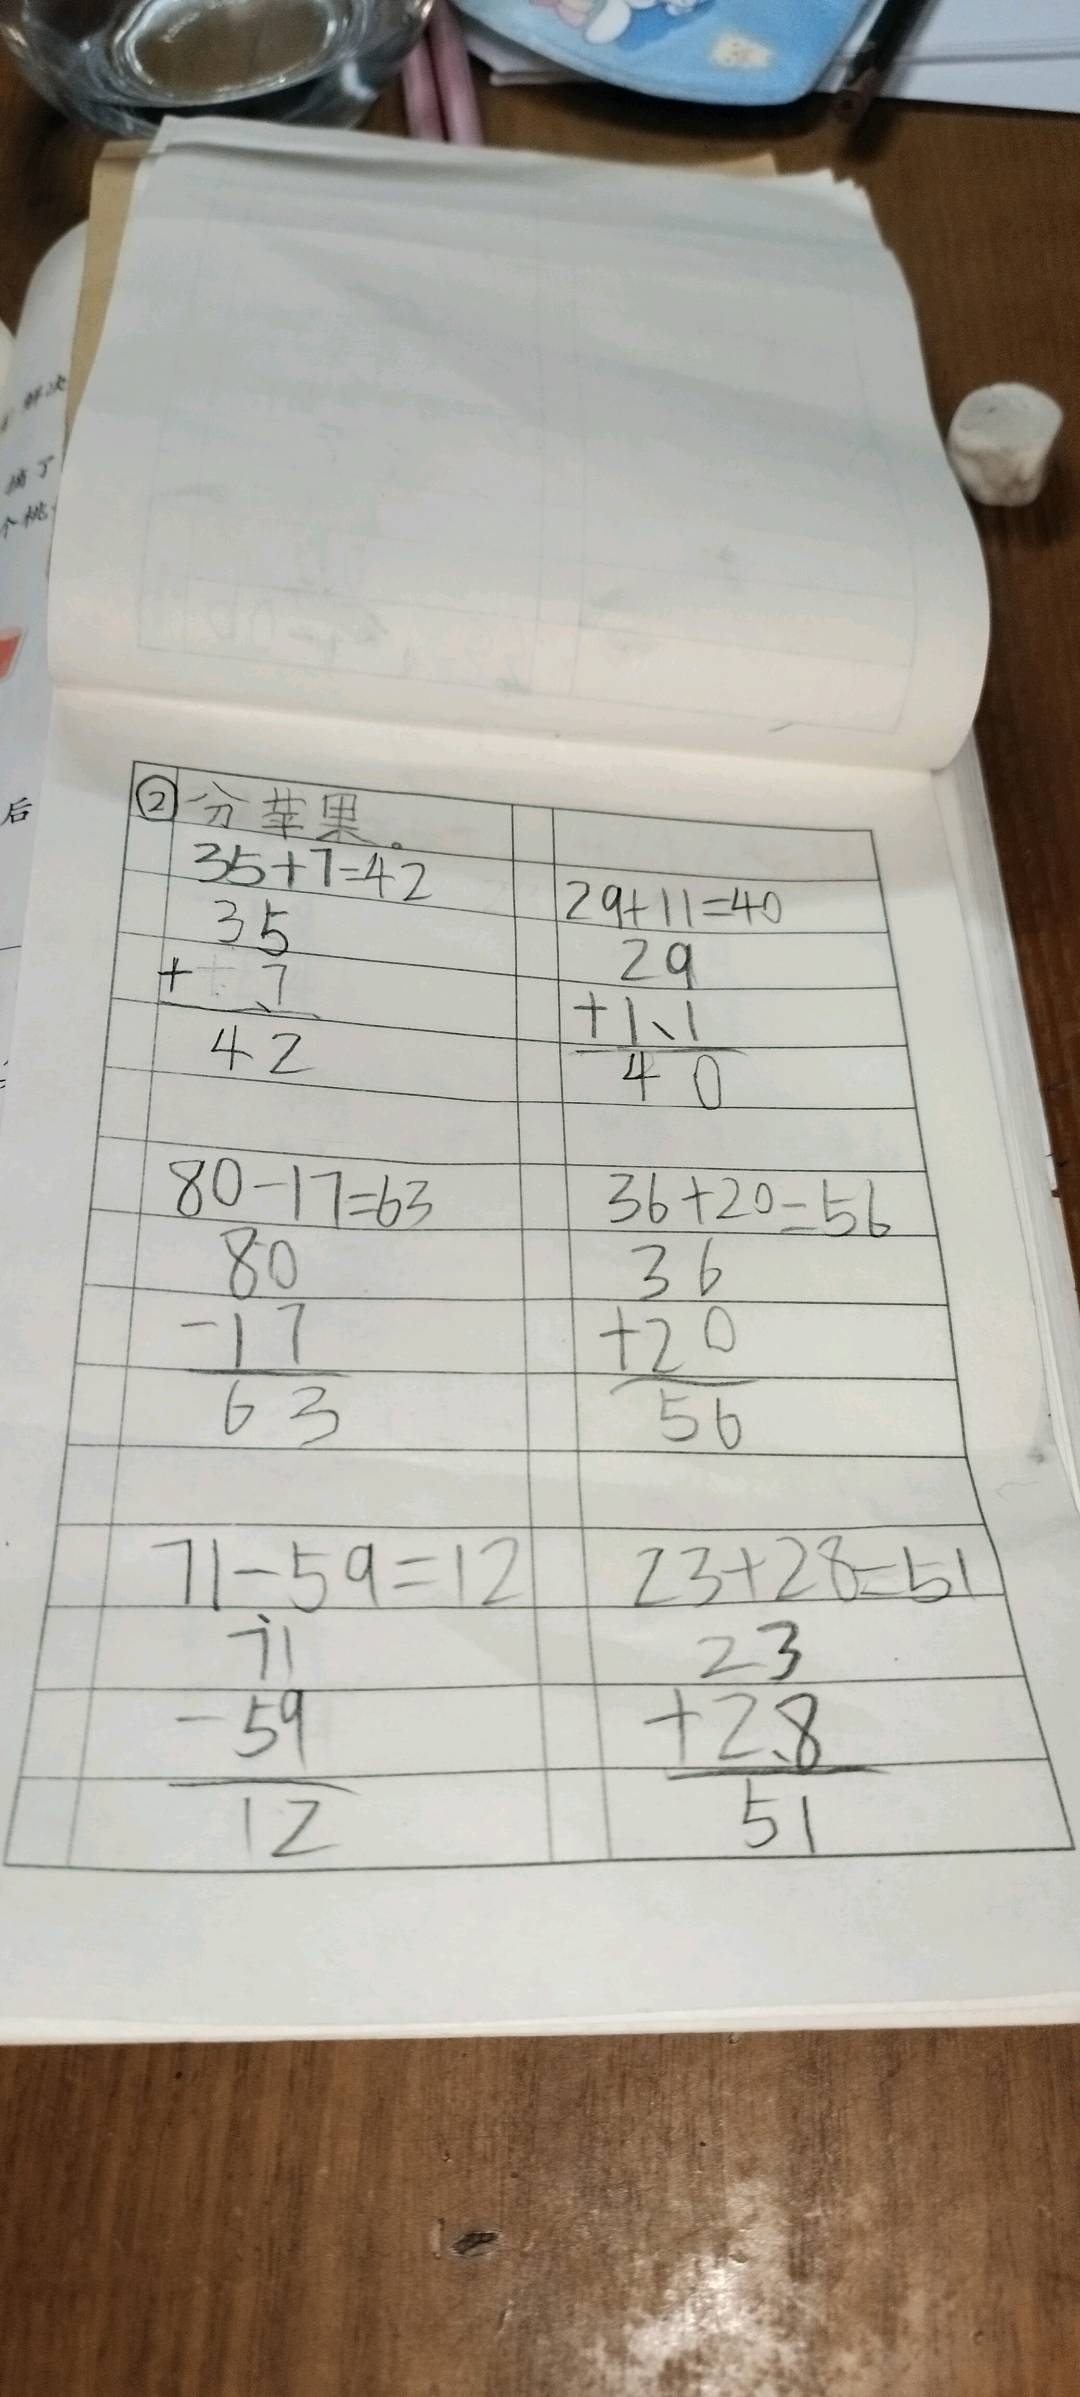 解决
摘了
个桃
后
② 分苹果。
35+7=42
35
+ 7
42
29+11=40
29
+11
40
80-17=63
80
-17
63
36+20=56
36
+20
56
71-59=12
71
-59
12
23+28=51
23
+28
51